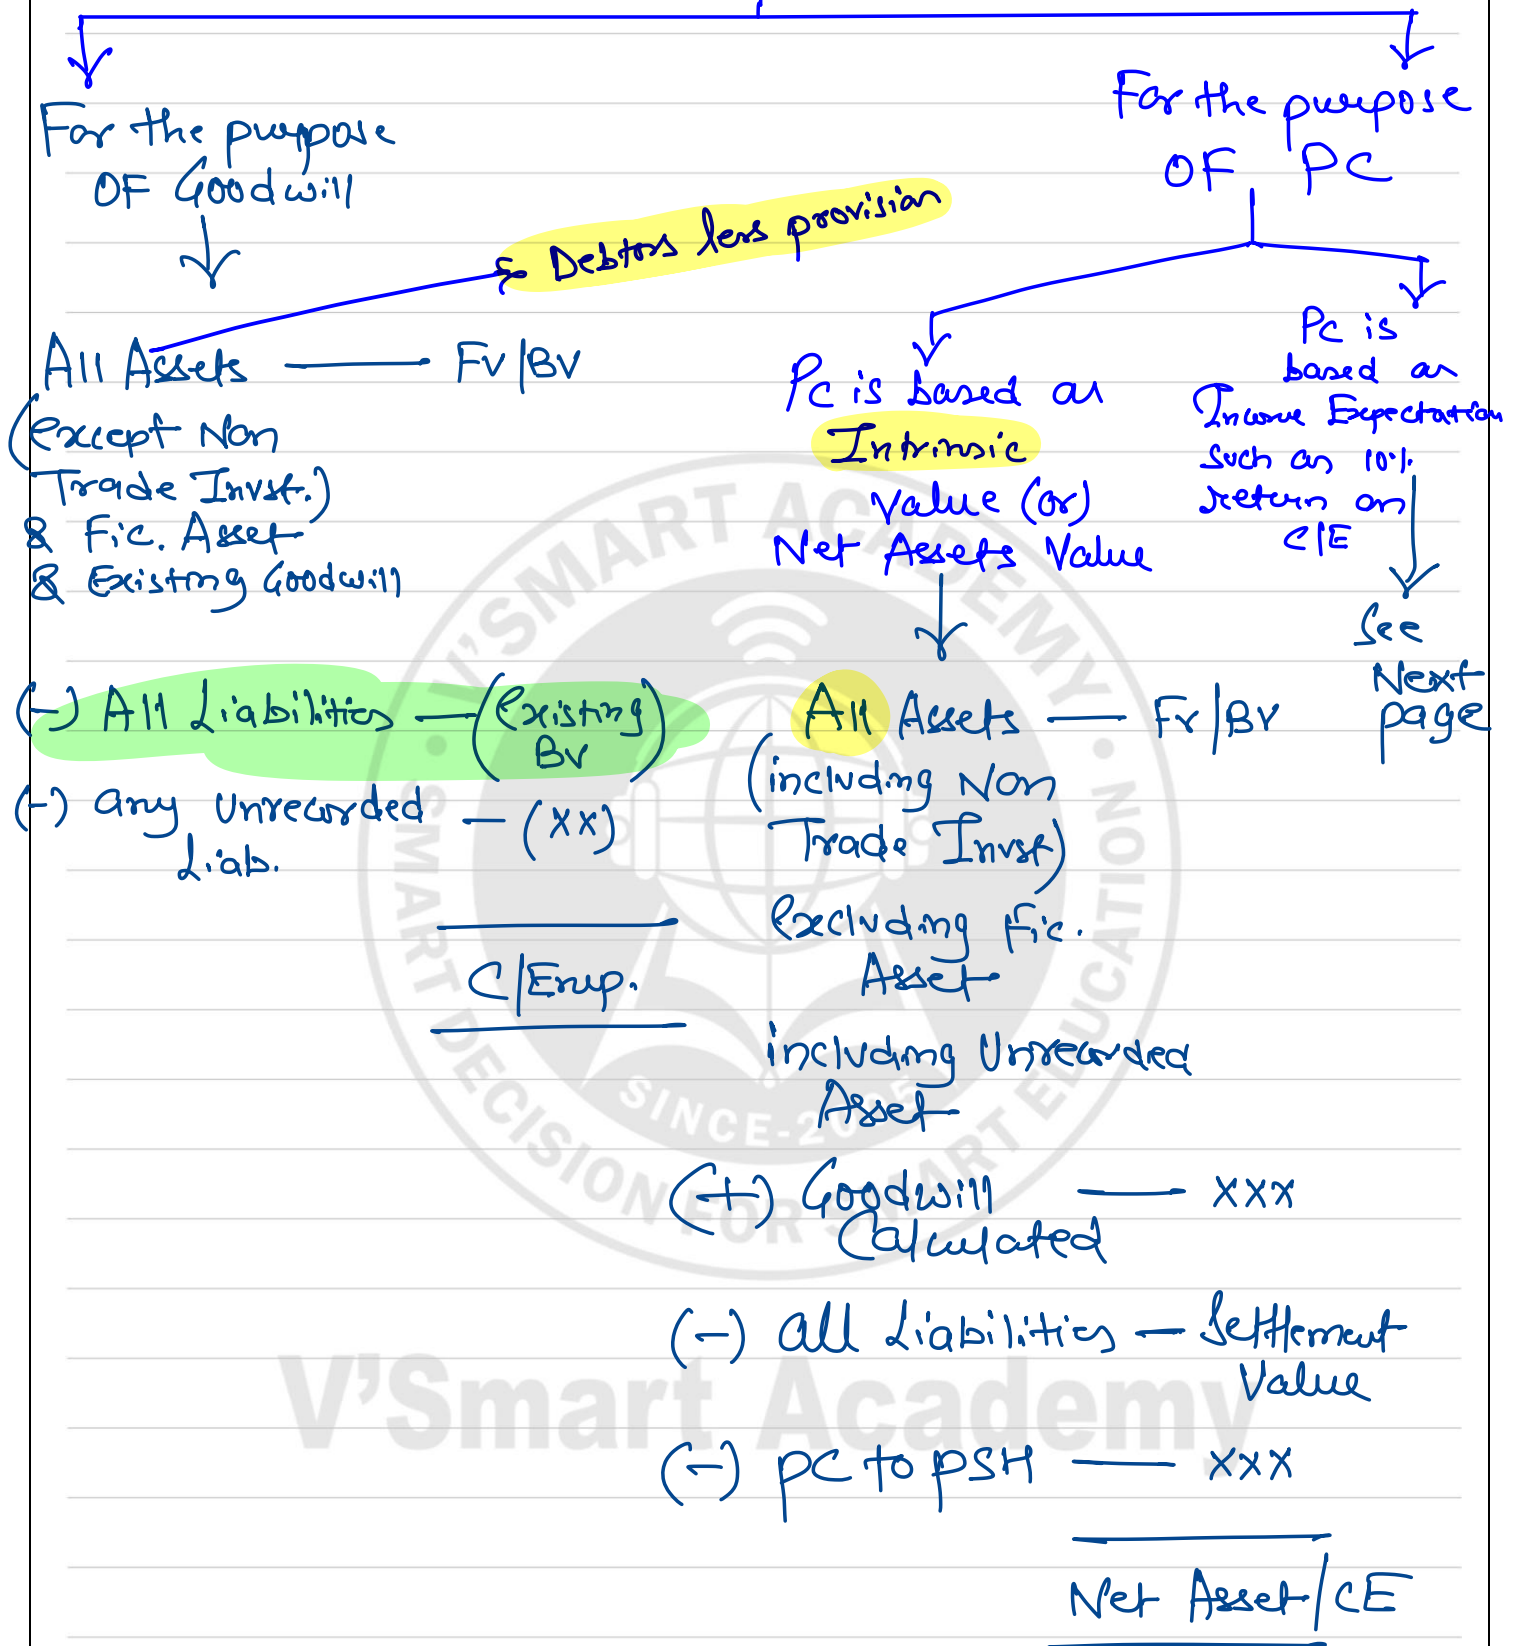 For the purpose
OF Goodwill
Debtors less provision
All Assets — FV/BV
(except Non
Trade Invst.)
& Fic. Asset
& Existing Goodwill
(-) All Liabilities — (existing
BV)
(-) any Unrecorded — (xx)
Liab.
C/Emp.
For the purpose
OF PC
PC is based on
Intrinsic
Value (or)
Net Assets Value
All Assets — FV/BV
(including Non
Trade Invst)
excluding Fic.
Asset
including Unrecorded
Asset
(+) Goodwill — xxx
Calculated
(-) all Liabilities — Settlement
Value
(-) PC to PSH — xxx
Net Asset/CE
PC is
based on
Income Expectation
such as 10%
return on
C/E
See
Next
page
V'SMART ACADEMY
SMART DECISION FOR SMART EDUCATION
V'Smart Academy